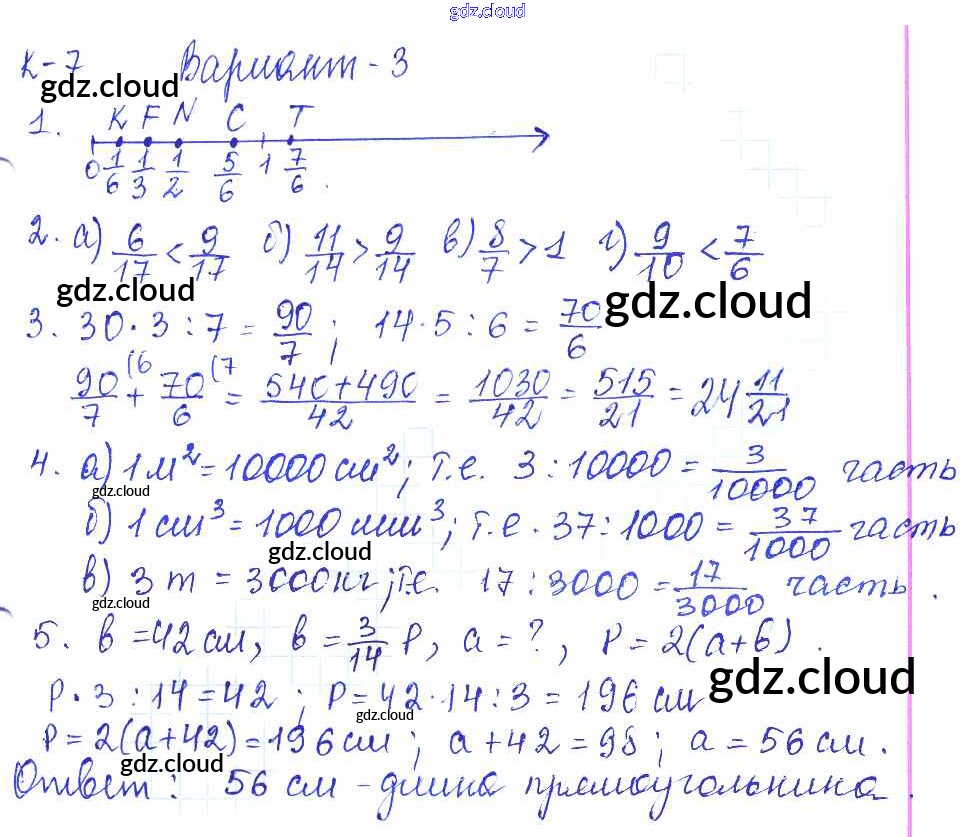 gdz.cloud
К-7 Вариант - 3
gdz.cloud
1. K F N C T
0 1/6 1/3 1/2 5/6 1 7/6
2. а) 6/17 < 9/17 б) 11/14 > 9/14 в) 8/7 > 1 г) 9/10 < 7/6
gdz.cloud gdz.cloud
3. 30·3:7 = 90/7; 14·5:6 = 70/6
90/7 (6 + 70/6 (7 = 540+490/42 = 1030/42 = 515/21 = 24 11/21
4. а) 1 м² = 10000 см²; т.е. 3:10000 = 3/10000 часть
gdz.cloud
б) 1 см³ = 1000 мм³; т.е. 37:1000 = 37/1000 часть
gdz.cloud
в) 3 т = 3000 кг; т.е. 17:3000 = 17/3000 часть.
gdz.cloud
5. в = 42 см, в = 3/14 P, a = ?, P = 2(a+б).
gdz.cloud
P·3:14 = 42; P = 42·14:3 = 196 см
gdz.cloud
P = 2(a+42) = 196 см; a+42 = 98; a = 56 см.
gdz.cloud
Ответ: 56 см - длина прямоугольника.